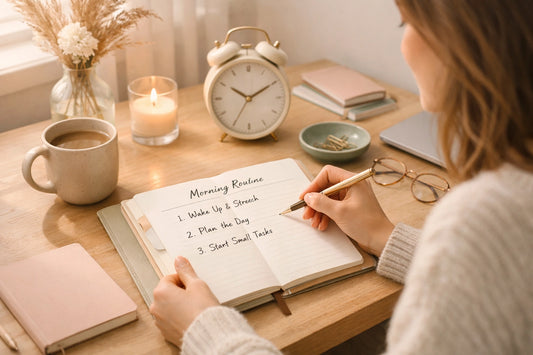 Morning Routine
1. Wake Up & Strech
2. Plan the Day
3. Start Small Tasks